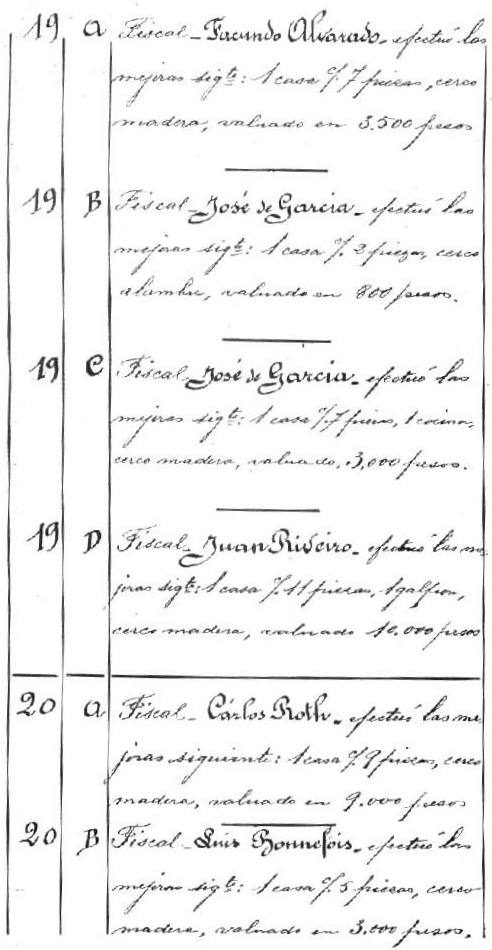 19 A Fiscal - Facundo Alvarado - efectuó las
mejoras sigte: 1 casa c/. 7 piezas, cerco
madera, valuado en 3.500 pesos
19 B Fiscal - José de Garcia - efectuó las
mejoras sigte: 1 casa c/. 2 piezas, cerco
alambre, valuado en 800 pesos.
19 C Fiscal - José de Garcia - efectuó las
mejoras sigte: 1 casa c/. 7 piezas, 1 cocina,
cerco madera, valuado, 3,000 pesos.
19 D Fiscal - Juan Ribeiro - efectuó las me-
joras sigte: 1 casa c/. 11 piezas, 1 galpon,
cerco madera, valuado 10.000 pesos
20 A Fiscal - Cárlos Roth - efectuó las me-
joras siguiente: 1 casa c/. 9 piezas, cerco
madera, valuado en 9.000 pesos
20 B Fiscal - Luis Bonnefois - efectuó las
mejoras sigte: 1 casa c/. 5 piezas, cerco
madera, valuado en 3,000 pesos.